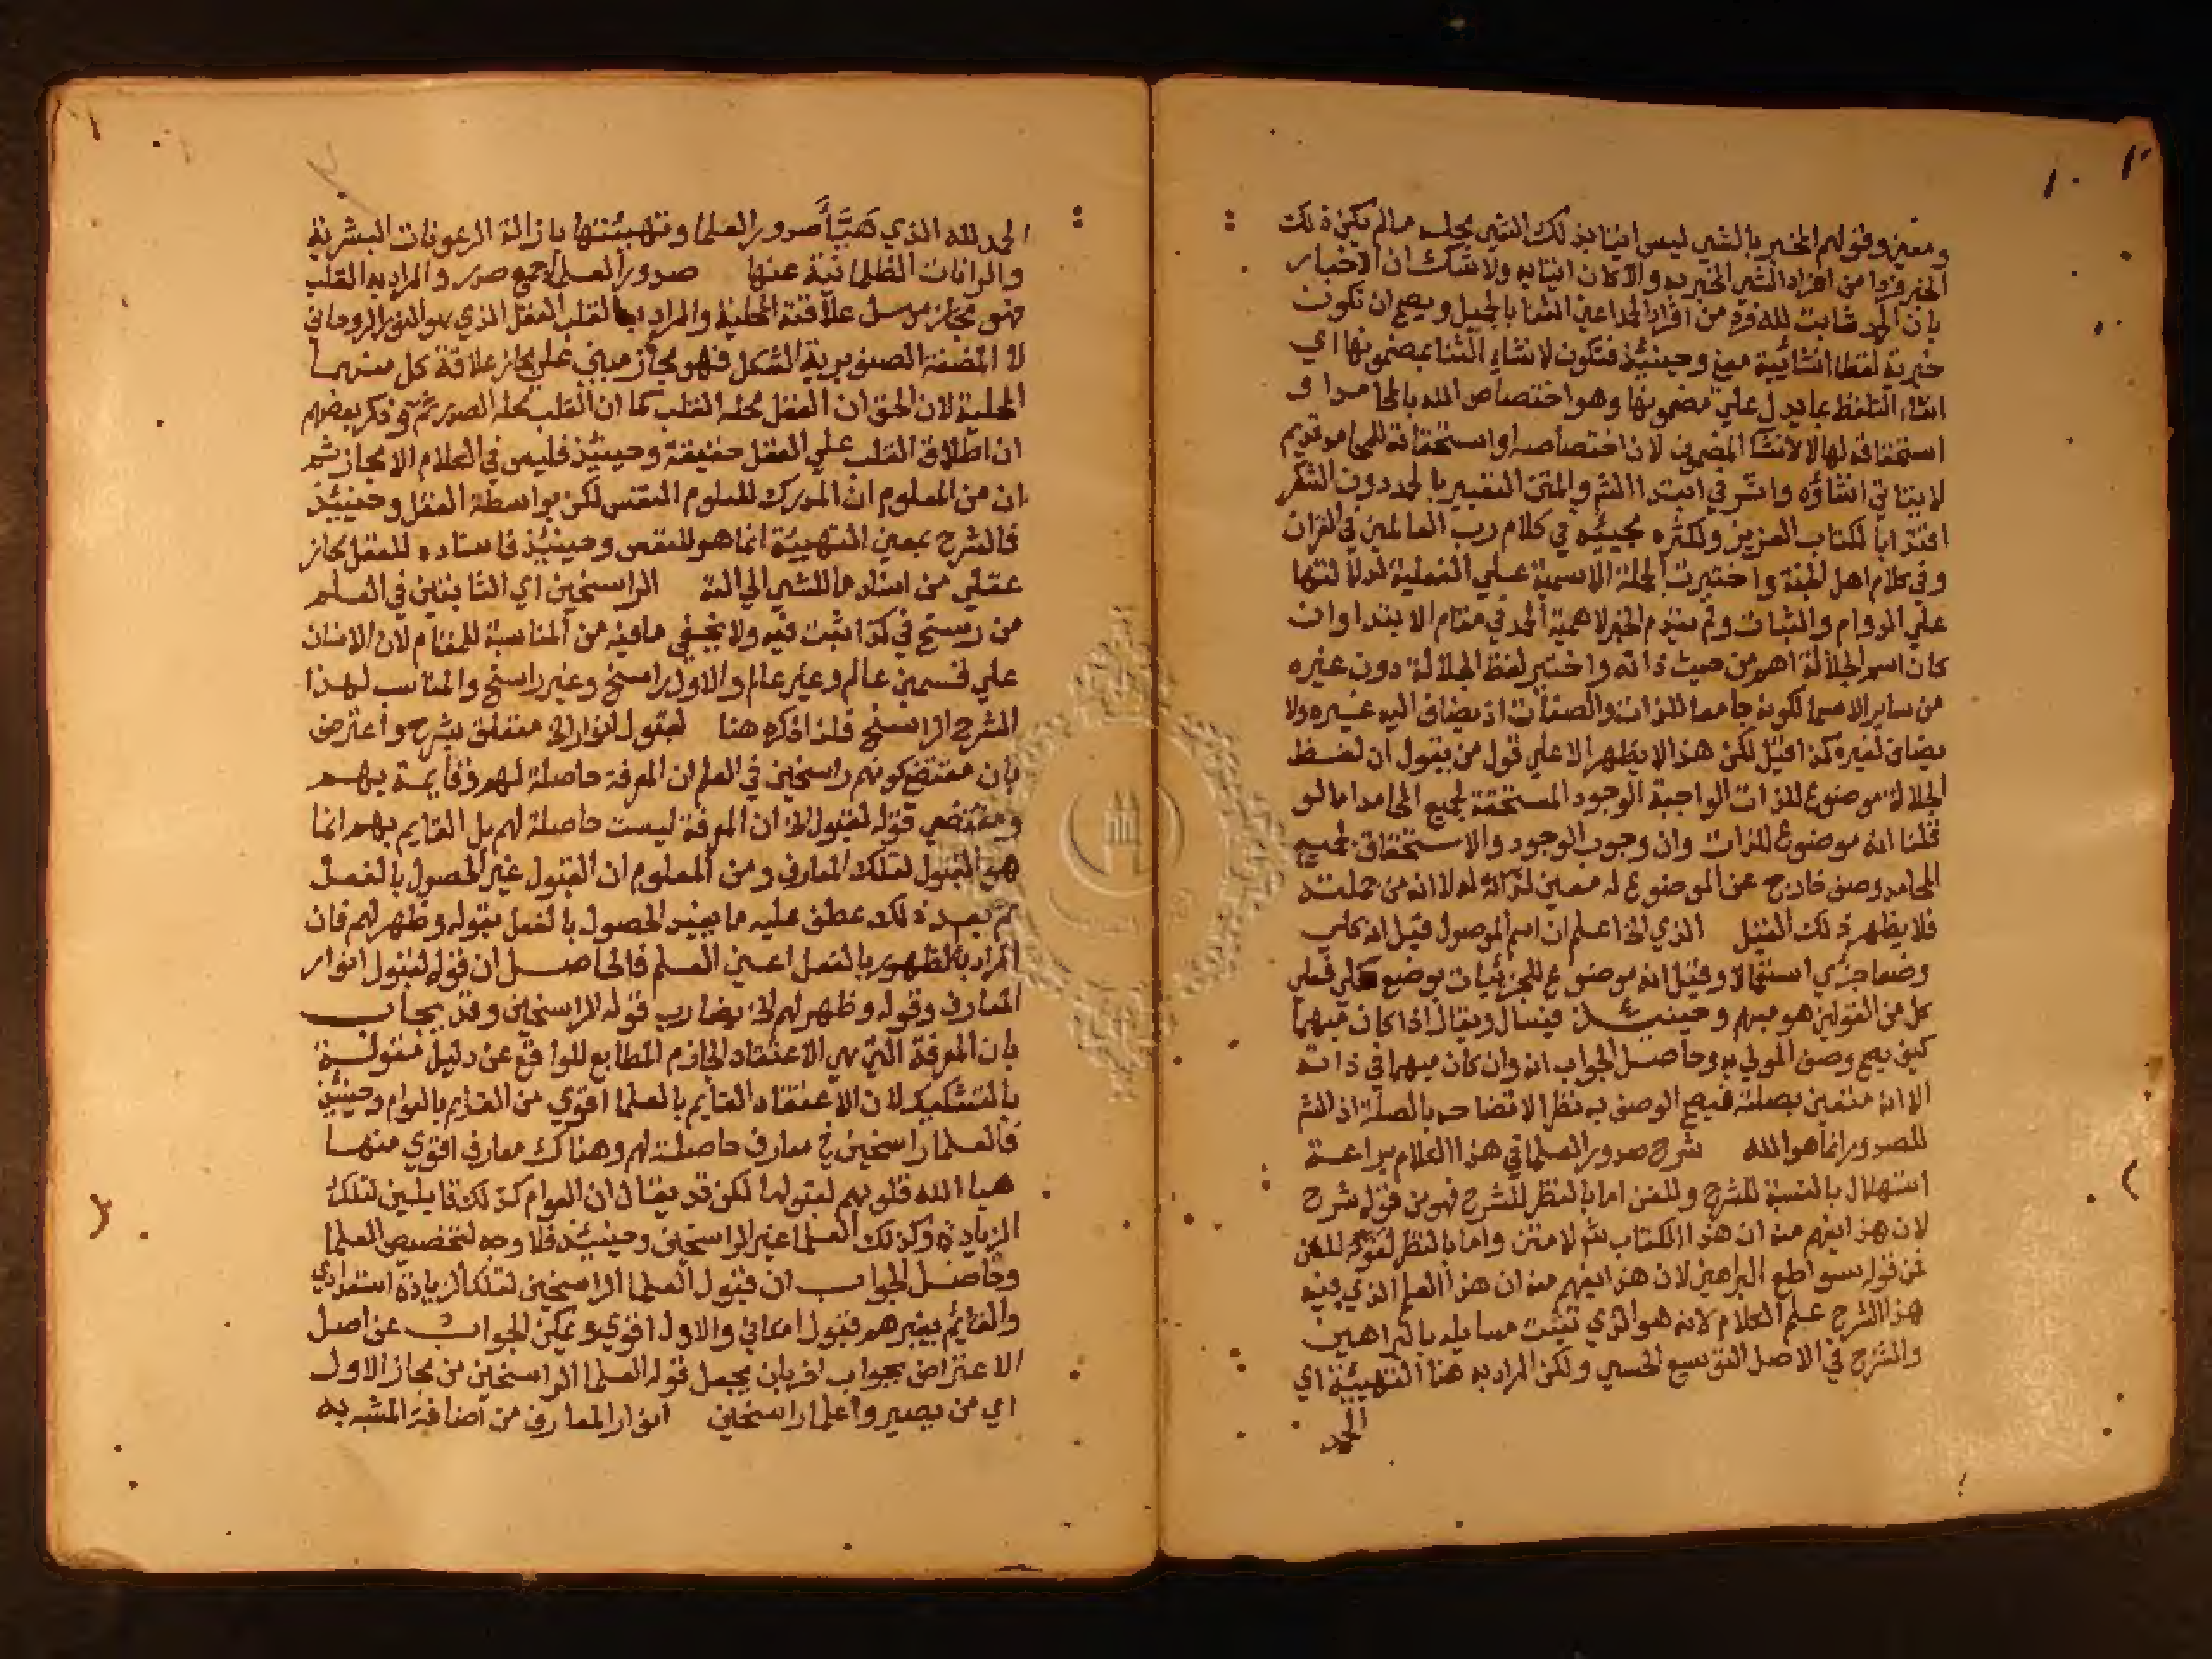 ومعني وقولهم المخبر بالشي ليس اتيا بذلك الشي محله مالم يكن ذلك
الخبر فردا من افراد الشي المخبر به والا كان اتيا به ولا شك ان الاخبار
بان الحمد ثابت لله فرد من افراد الحمد اعني الثنا بالجميل ويصح ان تكون
خبرية لفظا انشائية معني وحينيذ فتكون لانشاء الثنا بمضمونها اي
انشاء التلفظ بما يدل علي مضمونها وهو اختصاص الله بالمحامد او
استحقاقه لها لا لانشا المضمون لان اختصاصه او استحقاقه للمحامد قديم
لا يتاتي انشاؤه واثر في ابتدا الشرح والمتن التعبير بالحمد دون الشكر
اقتداء بالكتاب العزيز ولكثره مجيئه في كلام رب العالمين في القران
وفي كلام اهل الجنة واختيرت الجملة الاسمية علي الفعلية لدلالتها
علي الدوام والثبات ولم يقدم الخبر لاهمية الحمد في مقام الابتدا وان
كان اسم الجلالة اهم من حيث ذاته واختير لفظ الجلالة دون غيره
من ساير الاسما لكونه جامعا للذات والصفات اذ يضاف اليه غيره ولا
يضاف لغيره كذا قيل لكن هذا لا يظهر الا علي قول من يقول ان لفظ
الجلالة موضوع للذات الواجبة الوجود المستحقة لجميع المحامد اما لو
قلنا انه موضوع للذات وان وجوب الوجود والاستحقاق لجميع
المحامد وصف خارج عن الموضوع له معين لذاته له لا انه من جملته
فلا يظهر ذلك القيل الذي الخ اعلم ان اسم الموصول قيل انه كلي
وضعا جزي استعمالا وقيل انه موضوع للجزئيات بوضع كلي فعلي
كل من القولين هو مبهم وحينئذ فيسال ويقال اذا كان مبهما
كيف يصح وصف المولي به وحاصل الجواب انه وان كان مبهما في ذاته
الا انه متعين بصلته فيصح الوصف به نظرا لاتضاحه بالصلة اذ الشرح
للصدور انما هو الله شرح صدور العلما في هذا الكلام براعة
استهلال بالنسبة للشرح وللفن اما بالنظر للشرح فهو من قوله شرح
لان هذا يفهم منه ان هذا الكتاب شرح لا متن واما بالنظر للفن
فمن قوله سواطع البراهين لان هذا يفهم منه ان هذا العلم الذي فيه
هذا الشرح علم الكلام لانه هو الذي تثبت مسايله بالبراهين
والشرح في الاصل التوسيع الحسي ولكن المراد به هنا التهيئة اي
الحمد
الحمد لله الذي هَيَّأَ صدور العلما وتهيئتها بازالة الرعونات البشرية
والرانات الظلمانية عنها صدور العلما جمع صدر والمراد به القلب
فهو مجاز مرسل علاقته المحلية والمراد بالقلب العقل الذي هو النور الروحاني
لا المضغة الصنوبرية الشكل فهو مجاز مبني علي مجاز علاقة كل منهما
المحلية لان الحق ان العقل محله القلب كما ان القلب محله الصدر ثم وذكر بعضهم
ان اطلاق القلب علي العقل حقيقة وحينيذ فليس في الكلام الا مجاز ثم
ان من المعلوم ان المدرك للعلوم النفس لكن بواسطة العقل وحينيذ
فالشرح بمعني التهيئة انما هو للنفس وحينيذ فاسناده للعقل مجاز
عقلي من اسناد ما للشي الي الته الراسخين اي الثابتين في العلم
من رسخ في كذا ثبت فيه ولا يخفي ما فيه من المناسبة للمقام لان الانسان
علي قسمين عالم وغير عالم والاول راسخ وغير راسخ والمناسب لهذا
الشرح الراسخ فلذا ذكره هنا لقبول انوار الخ متعلق بشرح واعترض
بان مقتضي كونهم راسخين في العلم ان المعرفة حاصلة لهم وقايمة بهم
ومقتضي قوله لقبول الخ ان المعرفة ليست حاصلة لهم بل القايم بهم انما
هو القبول لتلك المعارف ومن المعلوم ان القبول غير الحصول بالفعل
ثم بعد ذلك عطف عليه ما يفيد الحصول بالفعل بقوله وظهر لهم فان
المراد بالظهور بالفعل اعني العلم فالحاصل ان قوله لقبول انوار
المعارف وقوله وظهر لهم الخ يضارب قوله الراسخين وقد يجاب
بان المعرفة التي هي الاعتقاد الجازم المطابع للواقع عن دليل مقولة
بالتشكيك لان الاعتقاد القايم بالعلما اقوي من القايم بالعوام وحينيذ
فالعلما راسخين في معارف حاصلة لهم وهناك معارف اقوي منها
هيا الله قلوبهم لقبولها لكن قد يقال ان العوام كذلك قابلين لتلك
الزيادة وكذلك العلما غير الراسخين وحينيذ فلا وجه لتخصيص العلما
وحاصل الجواب ان قبول العلما الراسخين لتلك الزيادة استعدادي
والقايم بغيرهم قبول امكاني والاول اقوي ويمكن الجواب عن اصل
الاعتراض بجواب اخر بان يجعل قوله العلما الراسخين من مجاز الاول
اي من يصير واعلما راسخين انوار المعارف من اضافة المشبه به